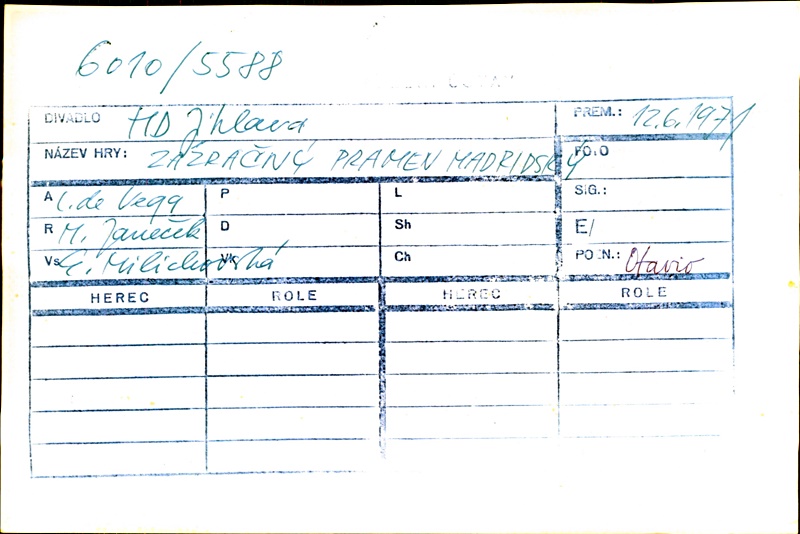 6010/5588
DIVADLO HD Jihlava PREM.: 12.6.1971
NÁZEV HRY: ZÁZRAČNÝ PRAMEN MADRIDSKÝ FOTO
A L. de Vega P L SIG.:
R M. Janeček D Sh E/
Vs Vk Ch POZN.: Otavio
HEREC ROLE HEREC ROLE